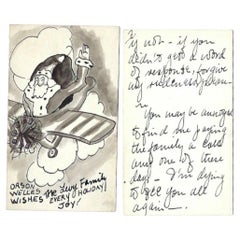 ORSON
WELLES
WISHES
the Levy Family
EVERY HOLIDAY
JOY!
If not - if you
didn't get a word
of response, forgive
my
You may be annoyed
to find me paying
the family a call
and one of these
days - I'm dying
to see you all
again -